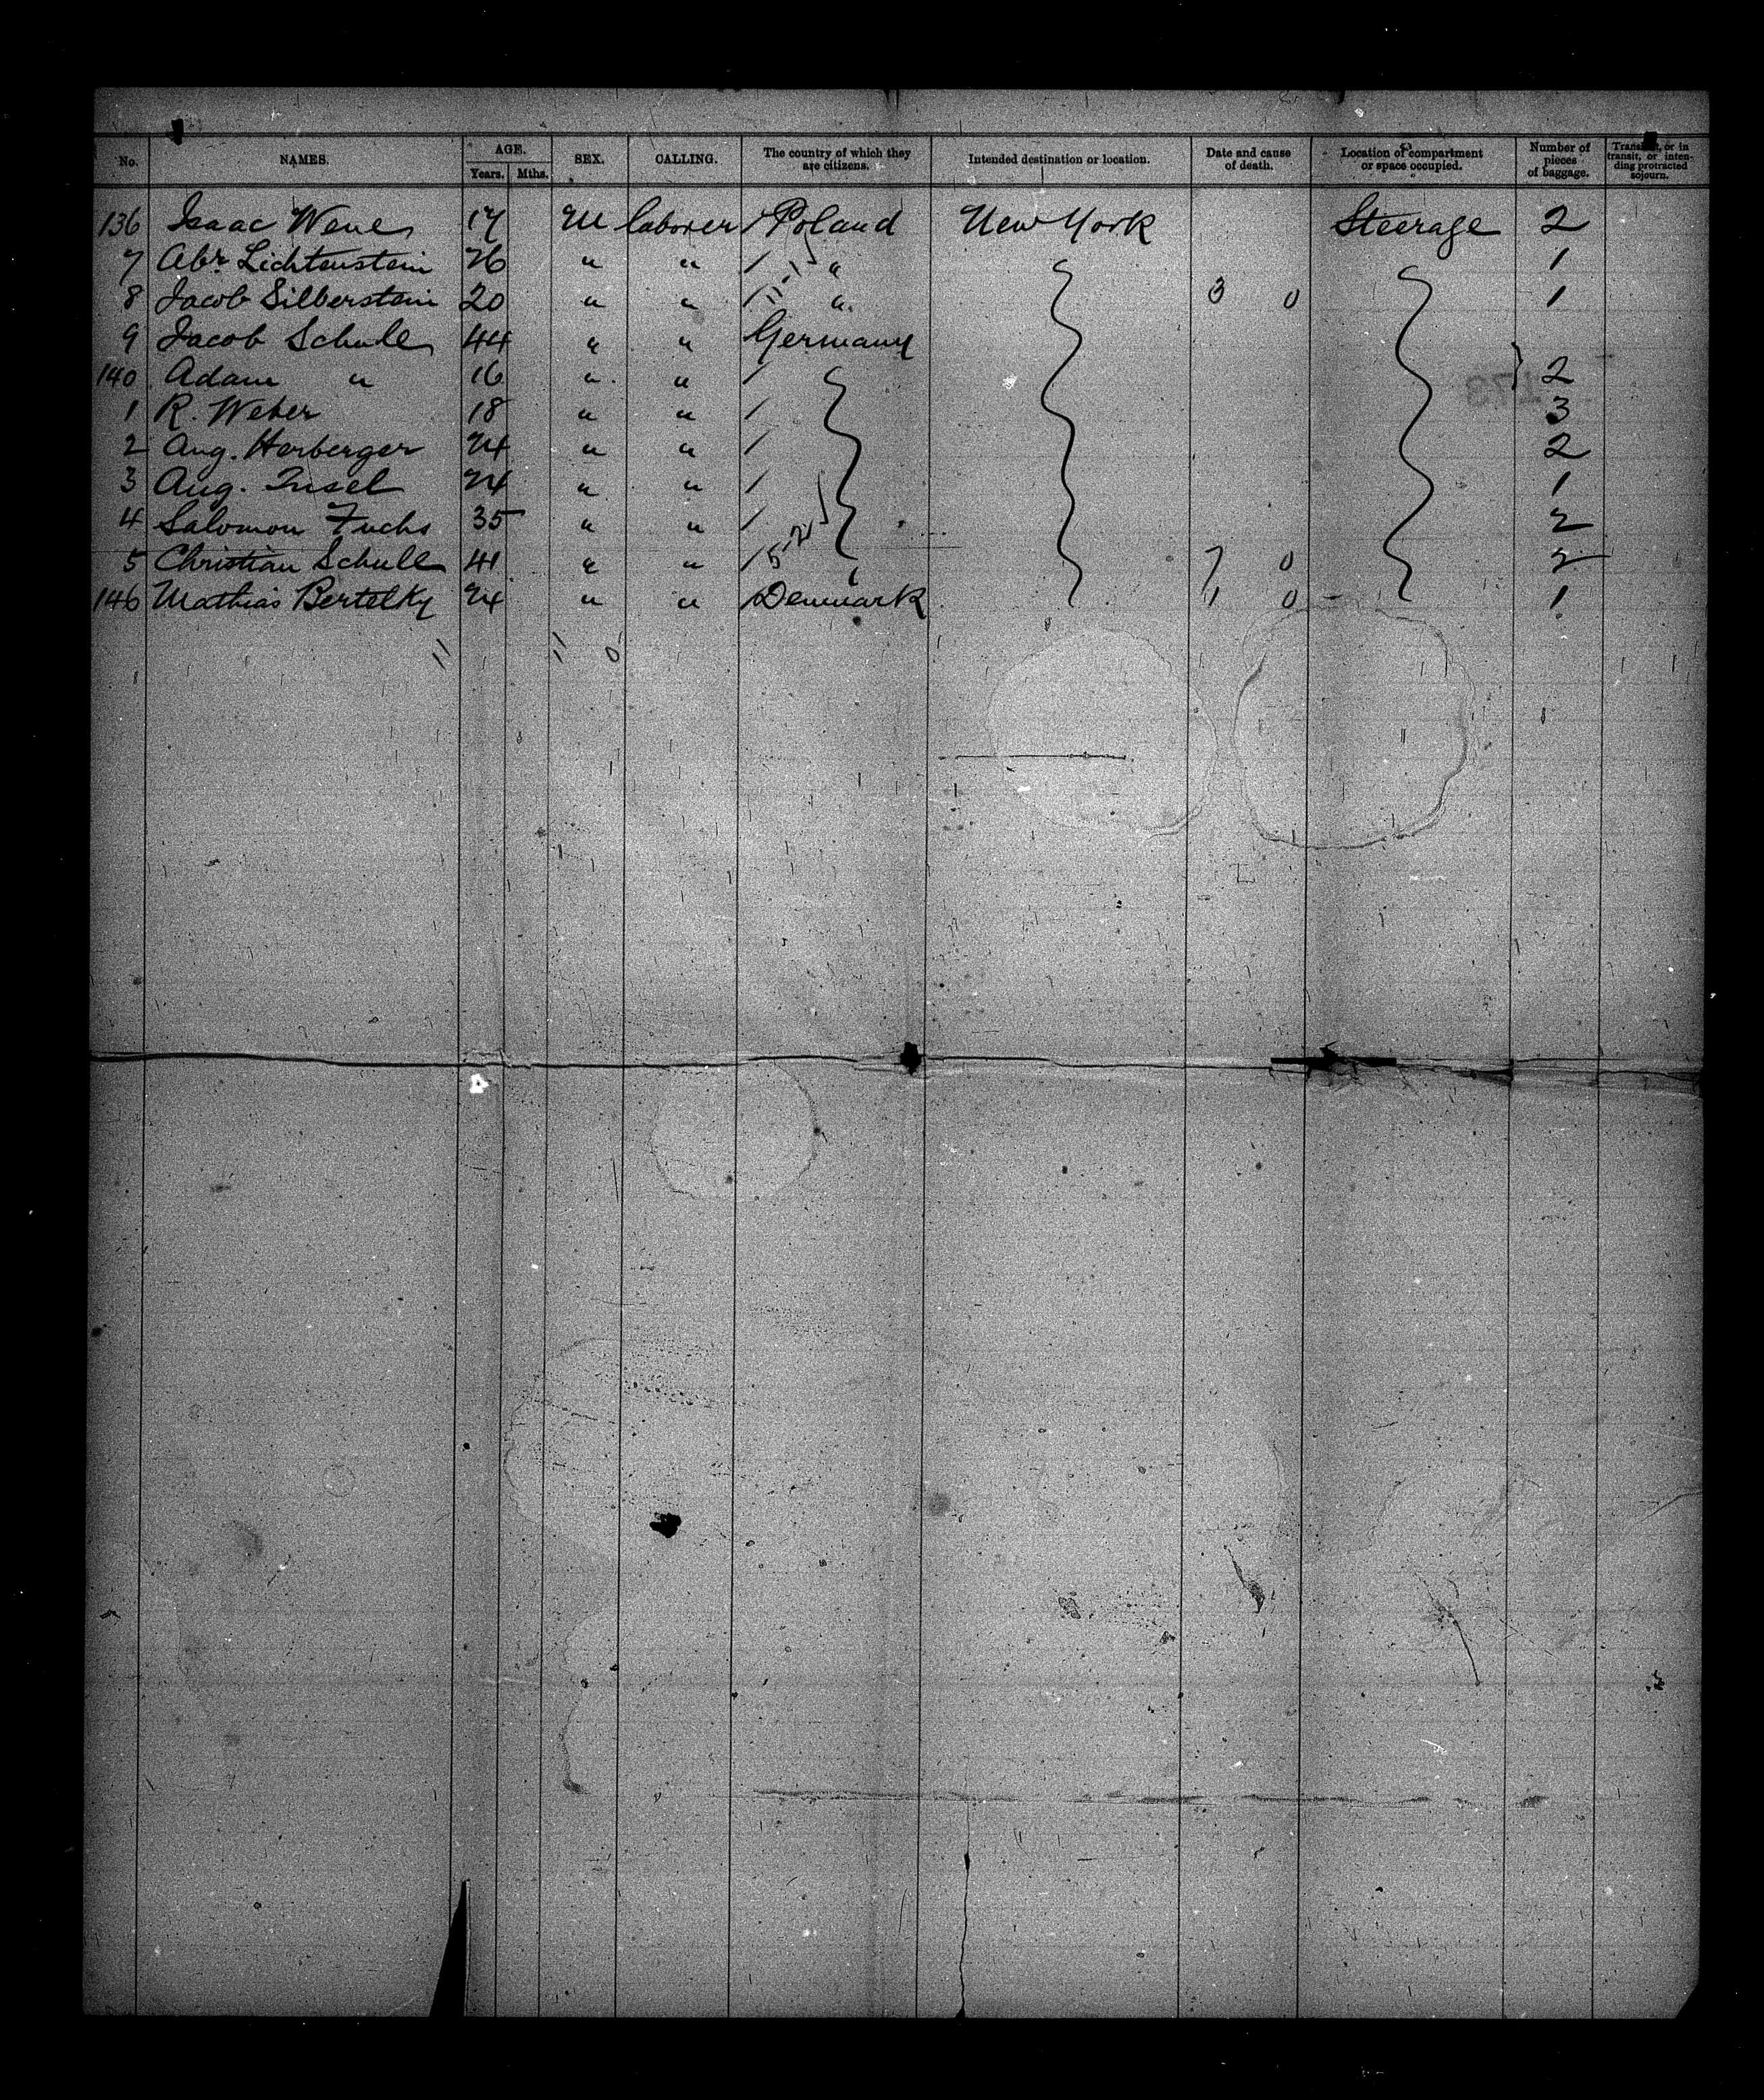 No. NAMES. AGE. Years. Mths. SEX. CALLING. The country of which they are citizens. Intended destination or location. Date and cause of death. Location of compartment or space occupied. Number of pieces of baggage. Transient, or in transit, or intending protracted sojourn.
136 Isaac 17 M laborer / Poland New York Steerage 2
7 Abr. Lichtenstein 26 " " / " 1
8 Jacob Silberstein 20 " " / " 3 0 1
9 Jacob Schule 44 " " Germany
140 Adam " 16 " " / } 2
1 R. Weber 18 " " / 3
2 Aug. Herberger 24 " " / 2
3 Aug. Insel 24 " " / 1
4 Salomon Fuchs 35 " " / 2
5 Christian Schull 41 " " / 7 0 2
146 Mathias Bertelky 24 " " / Denmark 1 0 1
11 11 0